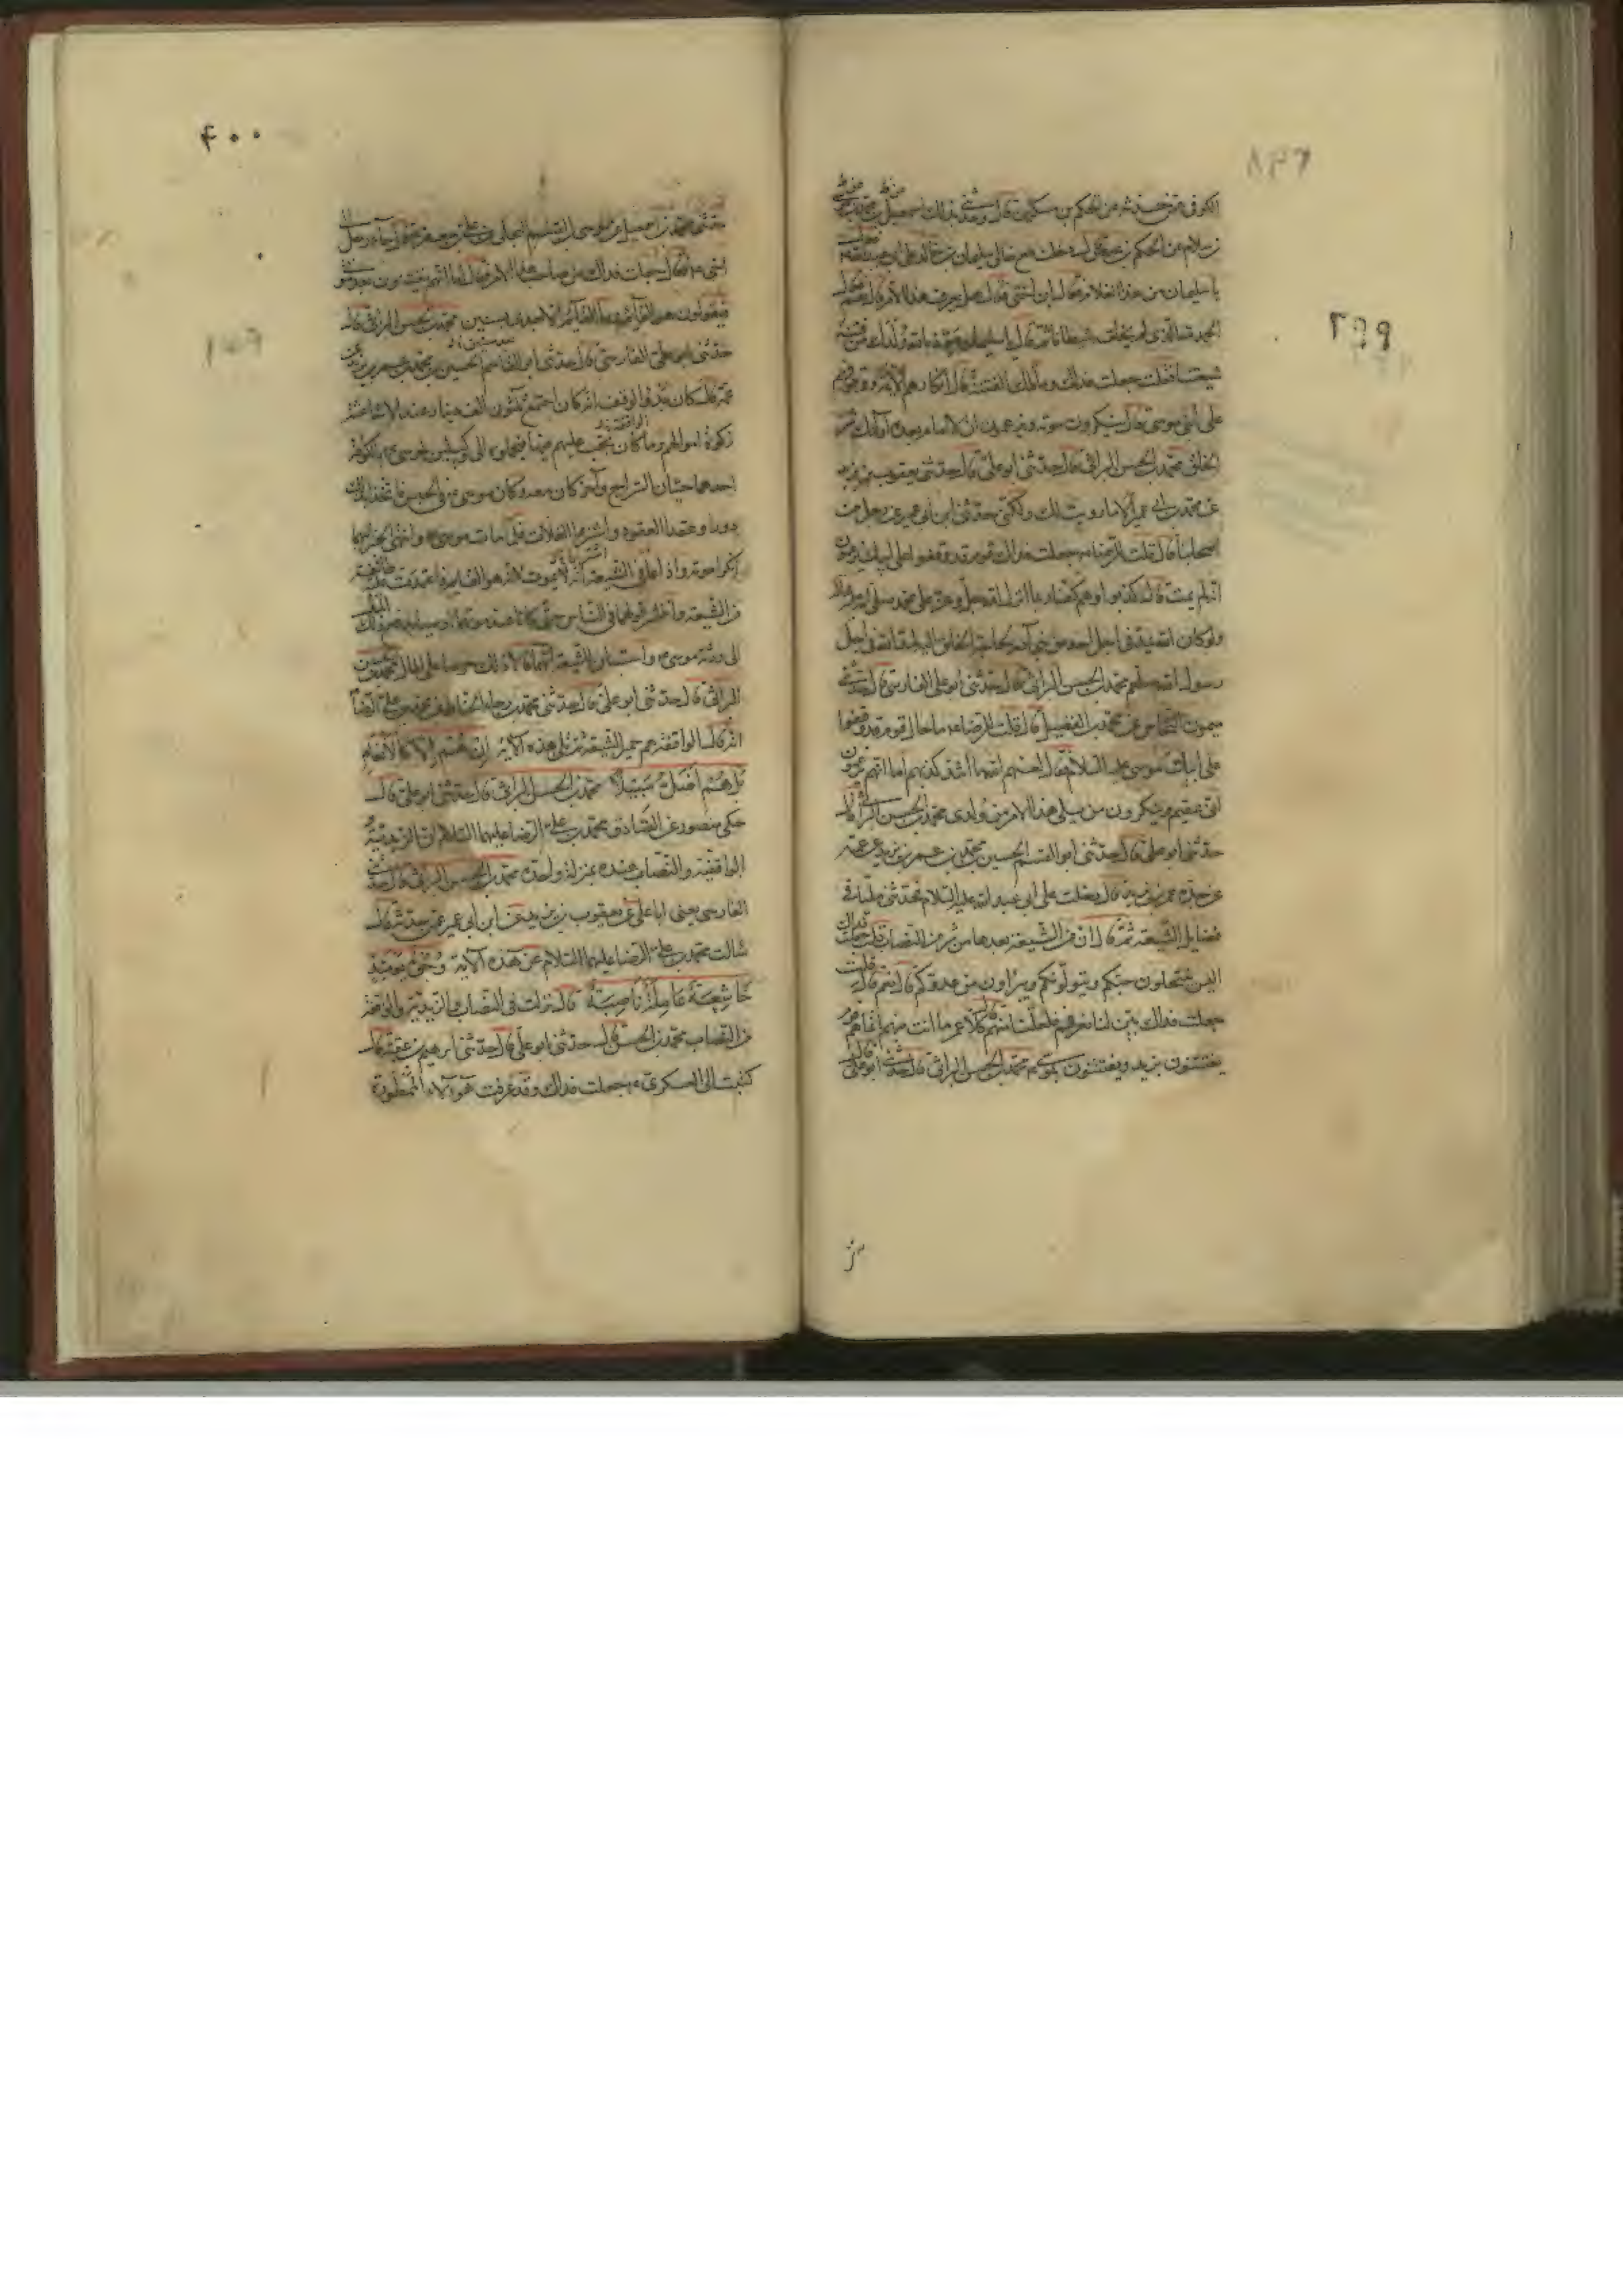 ٣٩٩
الكوفي عمن حدثه عن الحكم بن مسكين قال وحدثني بذلك اسمعيل بن محمد بن موسى
بن سلام عن الحكم بن عيص قال دخلت مع خالي سليمان بن خالد على ابي عبد الله ع فقال
يا سليمان من هذا الغلام فقال ابن اختي فقال هل يعرف هذا الامر فقال نعم فقال
الحمد لله الذي لم يخلقه شيطانا ثم قال يا سليمان عوذ بالله ولدك من فتنة
شيعتنا فقلت جعلت فداك وما تلك الفتنة قال انكارهم الائمة ووقوفهم
على ابني موسى قال ينكرون موته ويزعمون ان لا امام بعده اولئك شر
الخلق محمد بن الحسن البراثي قال حدثني ابو علي قال حدثني يعقوب بن يزيد
عن محمد بن ابي عمير الا ما رويت لك ولكني حدثني ابن ابي عمير عن رجل من
اصحابنا قال قلت للرضا ع جعلت فداك قوم قد وقفوا على ابيك يزعمون
انه لم يمت قال كذبوا وهم كفار بما انزل الله جل وعز على محمد صلى الله عليه واله
ولو كان الله يمد في اجل احد من بني آدم لحاجة الخلق اليه لمد الله في اجل
رسول الله صلعم محمد بن الحسن البراثي قال حدثني ابو علي الفارسي قال حدثني
ميمون النخاس عن محمد بن الفضيل قال قلت للرضا ع ما حال قوم قد وقفوا
على ابيك موسى عليه السلام فقال لعنهم الله ما اشد كذبهم اما انهم يزعمون
اني عقيم وينكرون من يلي هذا الامر من ولدي محمد بن الحسن البراثي قال
حدثني ابو علي قال حدثني ابو القسم الحسين بن محمد بن عمر بن يزيد عن عمه
عن جده عمر بن يزيد قال دخلت على ابي عبد الله عليه السلام فحدثني مليا في
فضايل الشيعة ثم قال ان من الشيعة بعدنا من هم شر من النصاب قلت جعلت فداك
اليس ينتحلون حبكم ويتولونكم ويبرأون من عدوكم قال نعم قال قلت
جعلت فداك بين لنا نعرفهم فلعلنا منهم قال كلا يا عمر ما انت منهم انما هم قوم
يفتنون بزيد ويفتنون بموسى ع محمد بن الحسن البراثي قال حدثني ابو علي قال
٤٠٠
حدثني محمد بن اسمعيل عن موسى بن القسم البجلي عن علي بن جعفر ع قال جاء رجل الى
اخي ع فقال جعلت فداك من صاحب هذا الامر فقال اما انهم يفتنون بعد موتي
فيقولون هو القائم وما القائم الا بعدي بسنين محمد بن الحسن البراثي قال
حدثني ابو علي الفارسي قال حدثني ابو القاسم الحسين بن محمد بن عمر بن يزيد عن
عمه قال كان بدو الواقفة انه كان اجتمع ثلثون الف دينار عند الاشاعثة
زكوة اموالهم وما كان يجب عليهم فيها فحملوه الى وكيلين لموسى ع بالكوفة
احدهما حيان السراج وآخر كان معه وكان موسى ع في الحبس فاتخذا بذلك
دورا وعقدا العقود واشتريا الغلات فلما مات موسى ع وانتهى الخبر اليهما
انكرا موته واذاعا في الشيعة انه لا يموت لانه هو القايم فاعتمدت عليه طائفة
من الشيعة وانتشر قولهما في الناس حتى كان عند موتهما اوصيا بدفع ذلك المال
الى ورثة موسى ع واستبان للشيعة انهما قالا ذلك حرصا على المال محمد بن الحسن
البراثي قال حدثني ابو علي قال حدثني محمد بن رجا الحناط عن محمد بن علي الرضا ع
انه قال الواقفة هم حمير الشيعة ثم تلا هذه الآية إن هم إلا كالأنعام
بل هم أضل سبيلا محمد بن الحسن البراثي قال حدثني ابو علي قال
حكى منصور عن الصادق محمد بن علي الرضا عليهما السلام ان الزيدية
الواقفية والنصاب عنده بمنزلة واحدة محمد بن الحسن البراثي قال حدثني
الفارسي يعني ابا علي عن يعقوب بن يزيد عن ابن ابي عمير عمن حدثه قال
سالت محمد بن علي الرضا عليهما السلام عن هذه الآية وجوه يومئذ
خاشعة عاملة ناصبة قال نزلت في النصاب والزيدية والواقفة
من النصاب محمد بن الحسن قال حدثني ابو علي قال حدثني ابرهيم بن عقبة قال
كتبت الى العسكري ع جعلت فداك وقد عرفت هؤلاء الممطورة